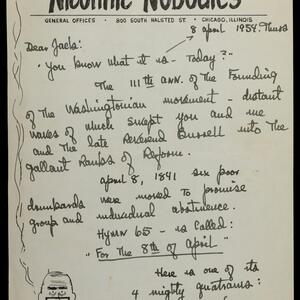 Nicotinic Nobodies
GENERAL OFFICES • 800 SOUTH HALSTED ST • CHICAGO, ILLINOIS
8 april 1954. Thurs
Dear Jack:
"You know what it is - Today?"
The 111th ann. of the Founding
of the Washingtonian movement - distant
waves of which swept you and me
and the late Reverend Burrell into the
gallant Ranks of Reform.
april 8, 1841 six poor
drunkards were moved to promise
group and individual abstinence.
Hymn 65 - is called:
"For the 8th of April"
Here is one of its
4 mighty quatrains: